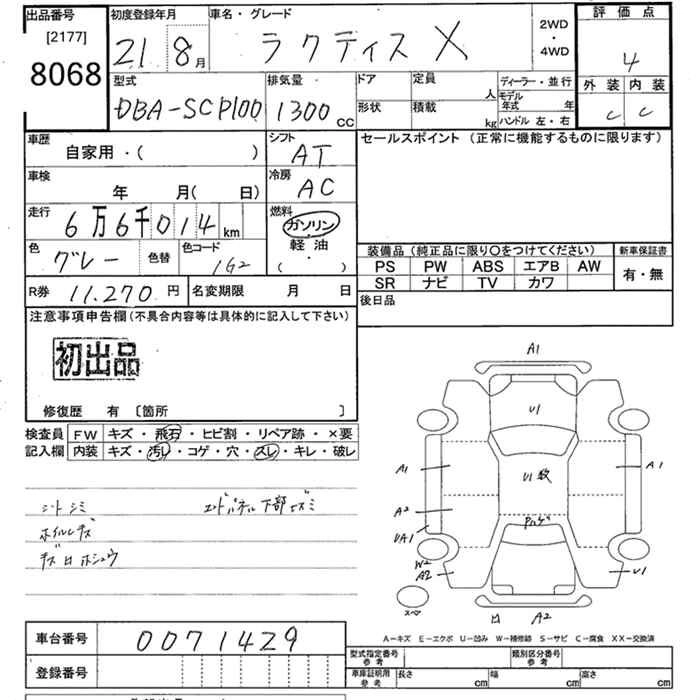 出品番号
[2177]
8068
初度登録年月
21 8月
車名・グレード
ラクティス X
2WD
・
4WD
評価点
4
外装 内装
C C
型式
DBA-SCP100
排気量
1300 CC
ドア
形状
定員 人
積載 kg
ディーラー・並行
モデル年式 年
ハンドル 左・右
車歴
自家用・( )
シフト
AT
セールスポイント (正常に機能するものに限ります)
車検
年 月( 日)
冷房
AC
走行
6万6千014km
燃料
ガソリン
・
軽油
( ・ )
色
グレー
色替
色コード
1G2
装備品(純正品に限り○をつけてください)
新車保証書
PS PW ABS エアB AW
SR ナビ TV カワ
有・無
R券 11,270円
名変期限 月 日
後日品
注意事項申告欄(不具合内容等は具体的に記入して下さい)
初出品
修復歴 有 〔箇所 〕
検査員
記入欄
FW キズ・飛石・ヒビ割・リペア跡・×要
内装 キズ・汚レ・コゲ・穴・スレ・キレ・破レ
シートシミ
エンドパネル下部キズミ
ホイルキズ
キズロホシュウ
A1
U1
A1
U1 数
A1
A2
UA1
W2
A2
U1
スペア
凹 A2
A-キズ E-エクボ U-凹み W-補修跡 S-サビ C-腐食 XX-交換済
車台番号
0071429
登録番号
型式指定番号
参考
類別区分番号
参考
車庫証明用
参考
長さ cm
幅 cm
高さ cm